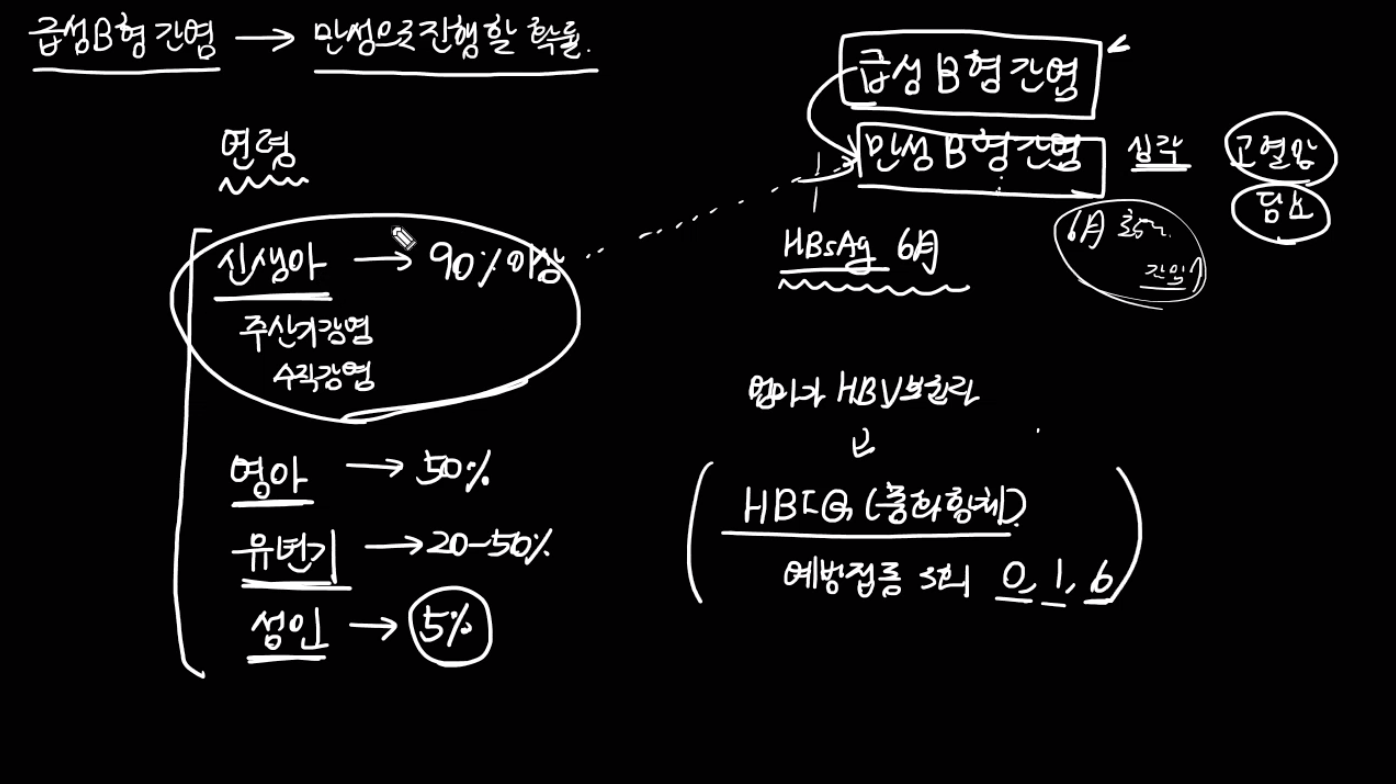 급성B형 간염 → 만성으로 진행할 확률.
연령
신생아 → 90% 이상
주산기감염
수직감염
영아 → 50%
유년기 → 20-50%
성인 → 5%
급성 B형 간염
만성 B형 간염 심각 고혈압
당뇨
HBsAg 6月
6月
간염
엄마가 HBV보균자
HBIG (중화항체).
예방접종 3회 0, 1, 6